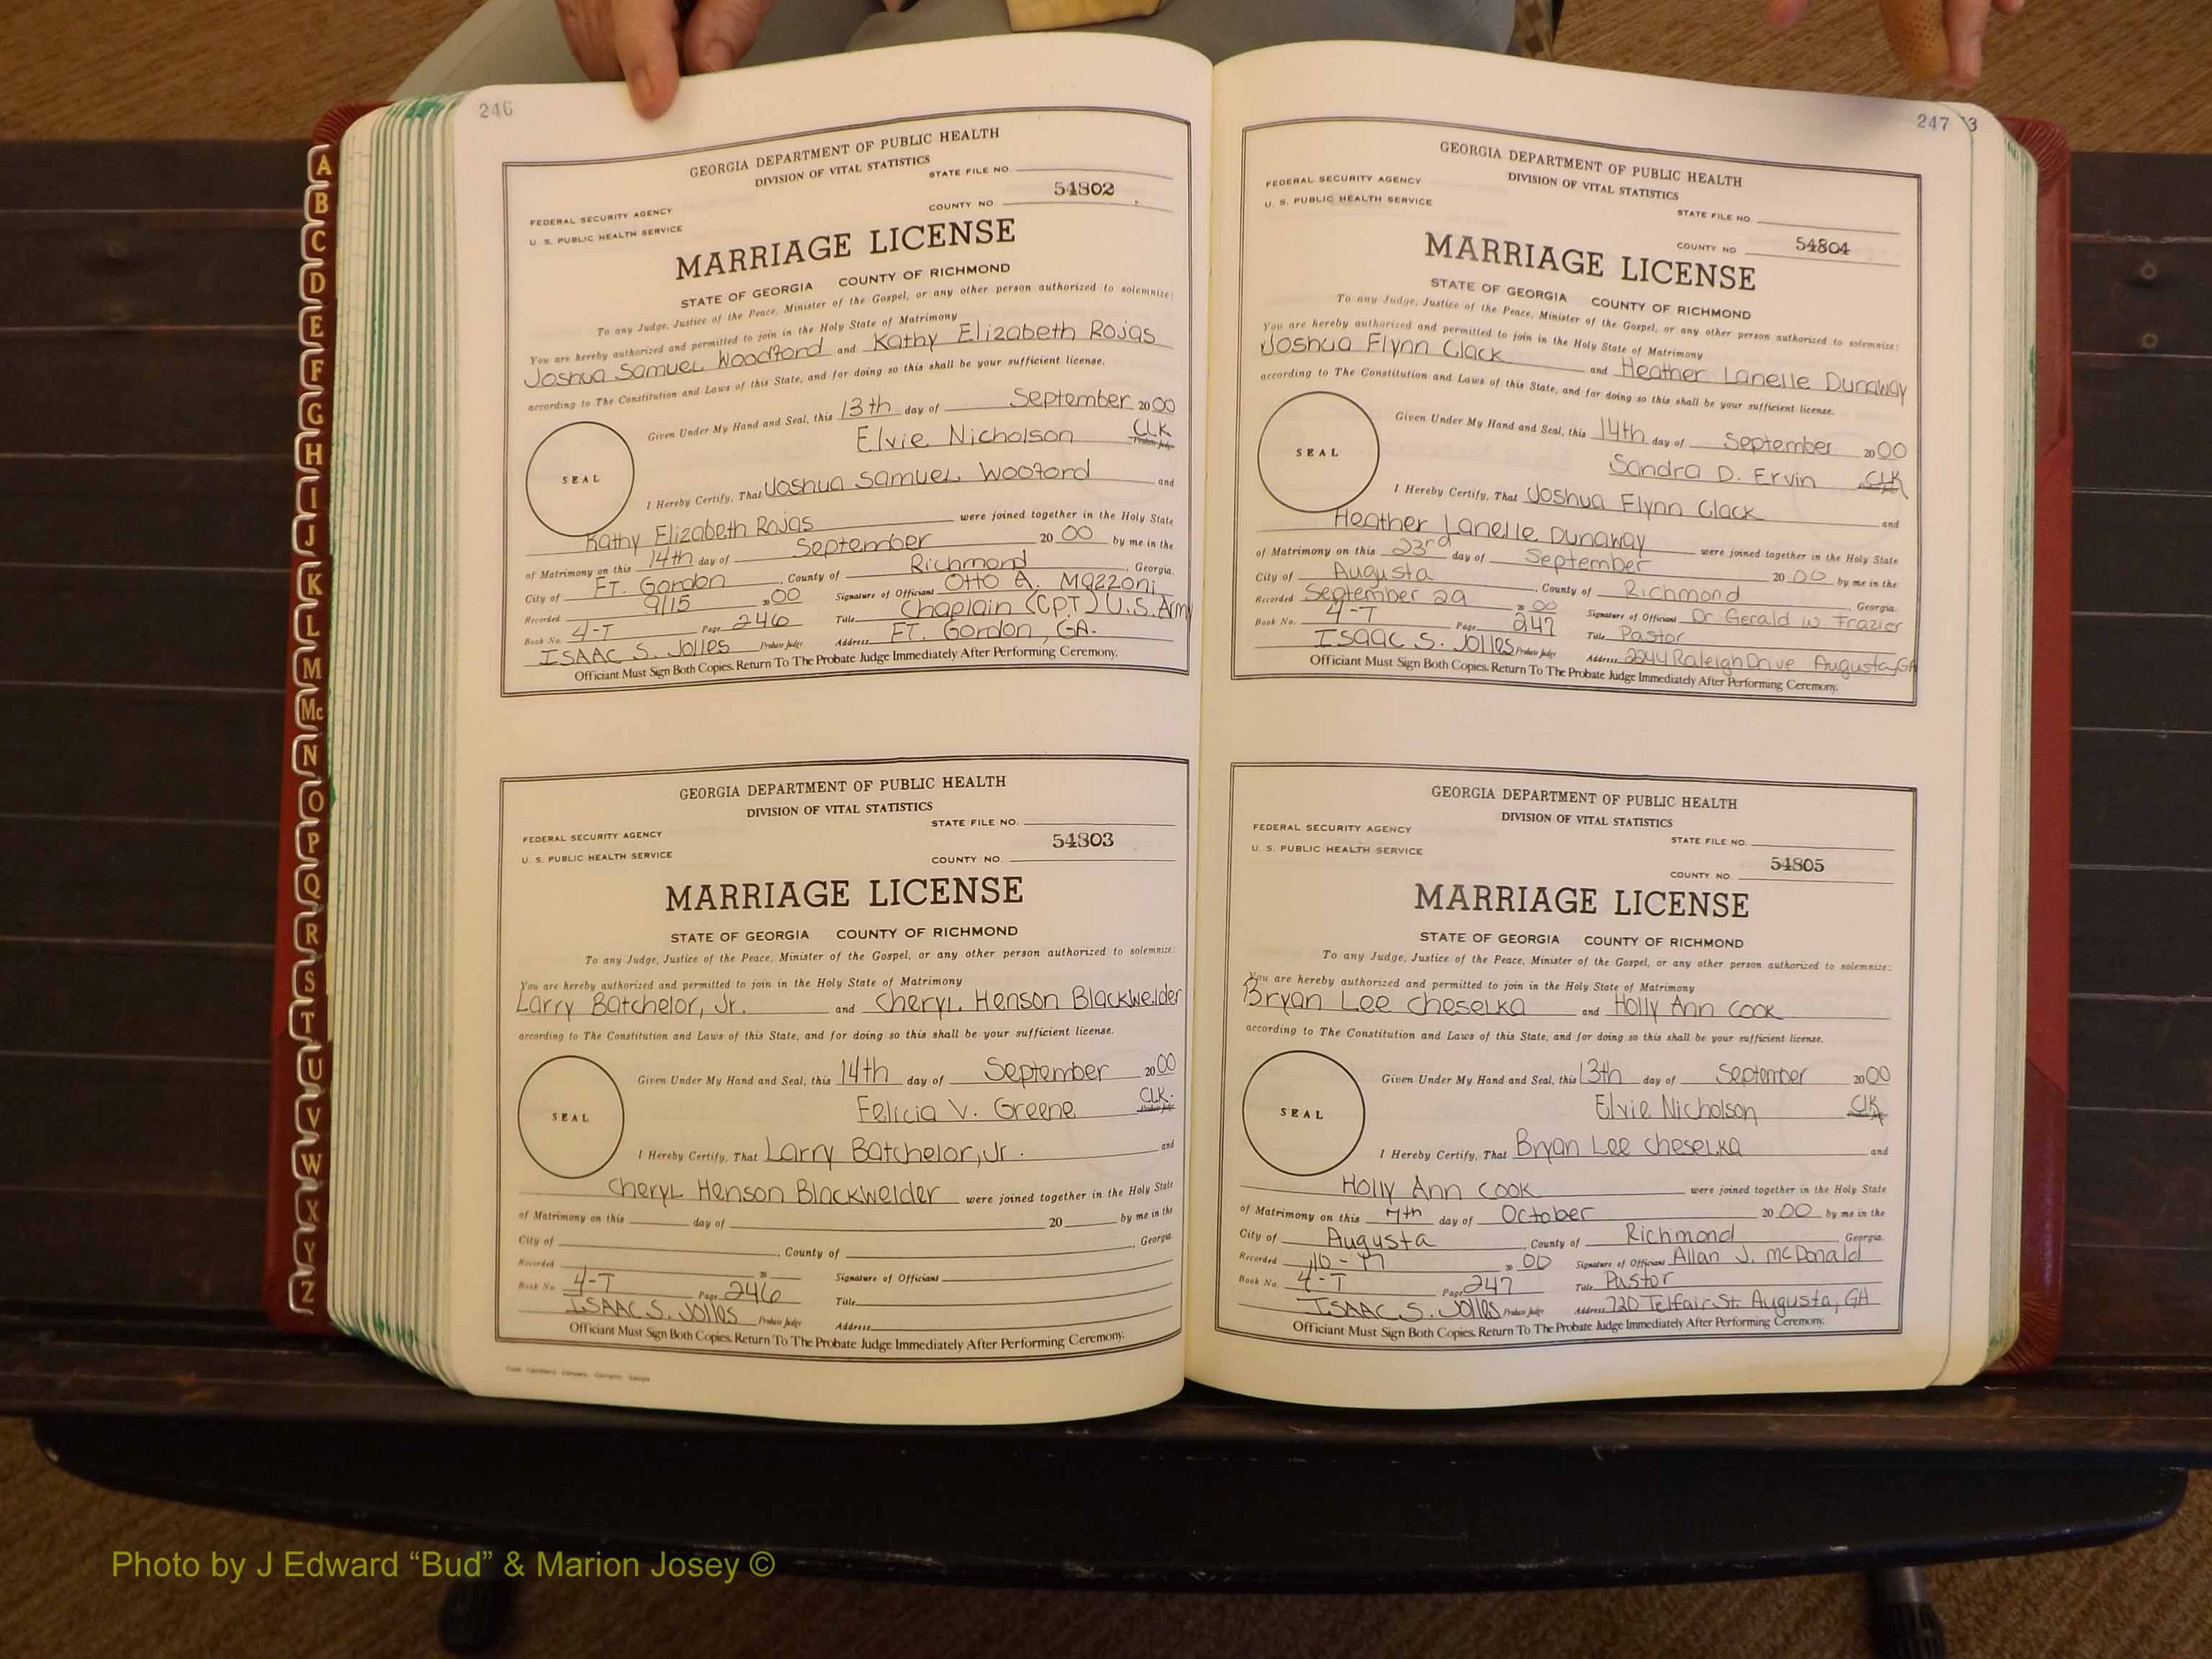 246
GEORGIA DEPARTMENT OF PUBLIC HEALTH
DIVISION OF VITAL STATISTICS
STATE FILE NO.
FEDERAL SECURITY AGENCY
U. S. PUBLIC HEALTH SERVICE
COUNTY NO. 54802
MARRIAGE LICENSE
STATE OF GEORGIA COUNTY OF RICHMOND
To any Judge, Justice of the Peace, Minister of the Gospel, or any other person authorized to solemnize:
You are hereby authorized and permitted to join in the Holy State of Matrimony
Joshua Samuel Woodford and Kathy Elizabeth Rojas
according to The Constitution and Laws of this State, and for doing so this shall be your sufficient license.
Given Under My Hand and Seal, this 13th day of September 2000
Elvie Nicholson CLK
Probate Judge
SEAL
I Hereby Certify, That Joshua Samuel Wooford and
Kathy Elizabeth Rojas were joined together in the Holy State
of Matrimony on this 14th day of September 20 00 by me in the
City of FT. Gordon, County of Richmond, Georgia.
Recorded 9/15 20 00 Signature of Officiant Otto A. Mazzoni
Book No. 4-T Page 246 Title Chaplain (CPT) U.S. Army
ISAAC S. Jolles Probate Judge Address FT. Gordon, GA.
Officiant Must Sign Both Copies. Return To The Probate Judge Immediately After Performing Ceremony.
GEORGIA DEPARTMENT OF PUBLIC HEALTH
DIVISION OF VITAL STATISTICS
STATE FILE NO.
FEDERAL SECURITY AGENCY
U. S. PUBLIC HEALTH SERVICE
COUNTY NO. 54803
MARRIAGE LICENSE
STATE OF GEORGIA COUNTY OF RICHMOND
To any Judge, Justice of the Peace, Minister of the Gospel, or any other person authorized to solemnize:
You are hereby authorized and permitted to join in the Holy State of Matrimony
Larry Batchelor, Jr. and Cheryl Henson Blackwelder
according to The Constitution and Laws of this State, and for doing so this shall be your sufficient license.
Given Under My Hand and Seal, this 14th day of September 2000
Felicia V. Greene CLK.
SEAL
I Hereby Certify, That Larry Batchelor, Jr. and
Cheryl Henson Blackwelder were joined together in the Holy State
of Matrimony on this day of 20 by me in the
City of , County of , Georgia.
Recorded 20 Signature of Officiant
Book No. 4-T Page 246 Title
ISAAC S. Jolles Probate Judge Address
Officiant Must Sign Both Copies. Return To The Probate Judge Immediately After Performing Ceremony.
247 3
GEORGIA DEPARTMENT OF PUBLIC HEALTH
DIVISION OF VITAL STATISTICS
FEDERAL SECURITY AGENCY
U. S. PUBLIC HEALTH SERVICE
STATE FILE NO.
COUNTY NO. 54804
MARRIAGE LICENSE
STATE OF GEORGIA COUNTY OF RICHMOND
To any Judge, Justice of the Peace, Minister of the Gospel, or any other person authorized to solemnize:
You are hereby authorized and permitted to join in the Holy State of Matrimony
Joshua Flynn Clack and Heather Lanelle Dunaway
according to The Constitution and Laws of this State, and for doing so this shall be your sufficient license.
Given Under My Hand and Seal, this 14th day of September 2000
Sandra D. Ervin CLK
SEAL
I Hereby Certify, That Joshua Flynn Clack and
Heather Lanelle Dunaway were joined together in the Holy State
of Matrimony on this 23rd day of September 20 00 by me in the
City of Augusta, County of Richmond, Georgia.
Recorded September 29 20 00 Signature of Officiant Dr Gerald W. Frazier
Book No. 4-T Page 247 Title Pastor
ISAAC S. Jolles Probate Judge Address 2244 Raleigh Drive Augusta, GA
Officiant Must Sign Both Copies. Return To The Probate Judge Immediately After Performing Ceremony.
GEORGIA DEPARTMENT OF PUBLIC HEALTH
DIVISION OF VITAL STATISTICS
FEDERAL SECURITY AGENCY
U. S. PUBLIC HEALTH SERVICE
STATE FILE NO.
COUNTY NO. 54805
MARRIAGE LICENSE
STATE OF GEORGIA COUNTY OF RICHMOND
To any Judge, Justice of the Peace, Minister of the Gospel, or any other person authorized to solemnize:
You are hereby authorized and permitted to join in the Holy State of Matrimony
Bryan Lee Cheselka and Holly Ann Cook
according to The Constitution and Laws of this State, and for doing so this shall be your sufficient license.
Given Under My Hand and Seal, this 13th day of September 2000
Elvie Nicholson CLK
SEAL
I Hereby Certify, That Bryan Lee Cheselka and
Holly Ann Cook were joined together in the Holy State
of Matrimony on this 7th day of October 20 00 by me in the
City of Augusta, County of Richmond, Georgia.
Recorded 10-17 20 00 Signature of Officiant Allan J. McDonald
Book No. 4-T Page 247 Title Pastor
ISAAC S. Jolles Probate Judge Address 720 Telfair St. Augusta, GA
Officiant Must Sign Both Copies. Return To The Probate Judge Immediately After Performing Ceremony.
A
B
C
D
E
F
G
H
I
J
K
L
M
Mc
N
O
P
Q
R
S
T
U
V
W
X
Y
Z
Photo by J Edward “Bud” & Marion Josey ©